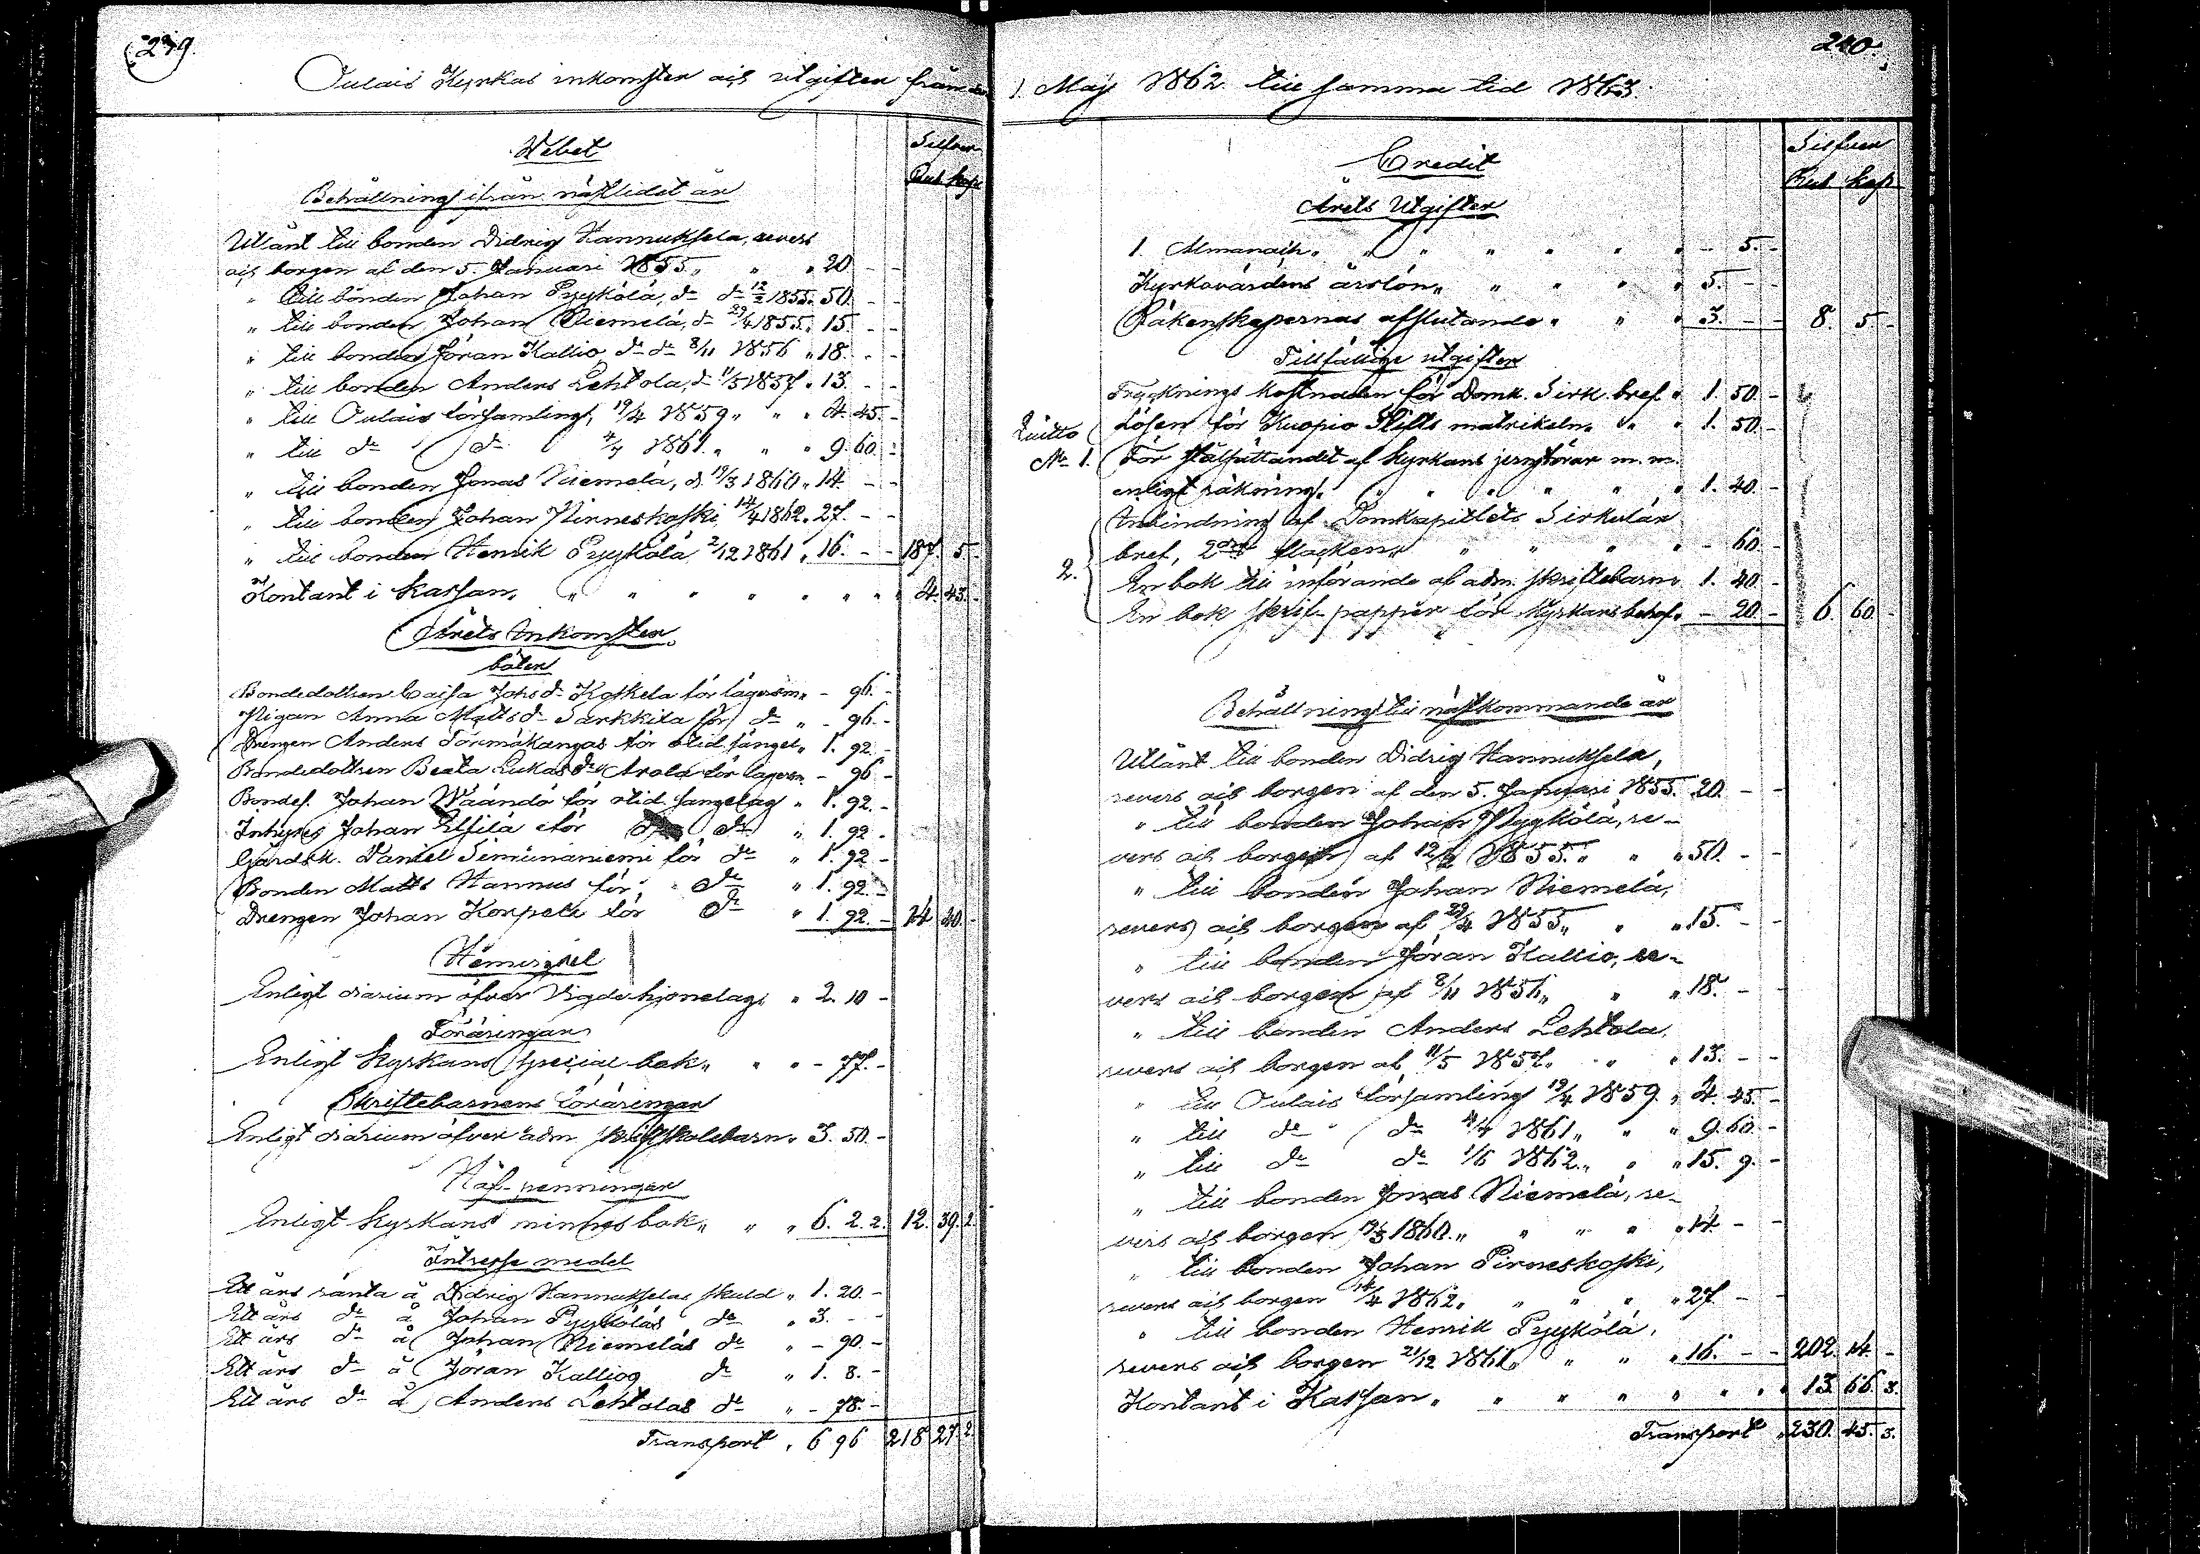 239.
Oulais Kyrkas inkomster och utgifter från den
Debet
Silfver
Rub. Kop.
Behållning ifrån nästlidet år
Utlånt till bonden Didrig Hannuksela, revers
och borgen af den 5. Januari 1855 " " " 20 - -
" till bonden Johan Pyykölä, do do 12/2 1855. 50. - -
" till bonden Johan Niemelä, do 29/4 1855. 15. - -
" till bonden Jöran Kallio do do 8/11 1856 " 18. - -
" till bonden Anders Lehtola, do 11/5 1857. " 13. - -
" till Oulais församling, 19/4 1859 " " " 4. 45. -
" till do do 4/4 1861. " " " 9. 60. -
" till bonden Jonas Niemelä, d. 19/3 1860 " 14 - -
" till bonden Johan Pirneskoski 14/4 1862. " 27. - -
" till bonden Henrik Pyykölä 21/12 1861 " 16. - - 187. 5. -
Kontant i Kassan, " " " " " " " 4. 43. -
Årets Inkomster
böter
Bondedottren Caisa Johs dr Koskela för lägersm. " - 96. -
Pigan Anna Matts dr Sarkkila för do " - 96. -
Drengen Anders Törmäkangas för otid. sängel. " 1. 92. -
Bondedottren Beata Lukas dr Arola för lägersm. - 96 -
Bondes. Johan Wäändö för otid. sängelag " 1. 92. -
Inhyses Johan Elfilä för do do " 1. 92. -
Gårdsk. Daniel Simunaniemi för do " 1. 92 -
Bonden Matts Hannus för do " 1. 92. -
Drengen Johan Korpela för do " 1. 92. - 14 40. -
Enligt diarium öfver vigde hjonelag, " 2. 10 -
Föräringar
Enligt Kyrkans special bok " " " - 77. -
Skriftebarnens föräringar
Enligt diarium öfver adm. skriftskolebarn " 3. 50. -
Håf-penningar
Enligt Kyrkans minnesbok " " " 6. 2. 2. 12. 39. 2.
Intresse medel
Ett års ränta å Didrig Hannukselas skuld " 1. 20. -
Ett års do å Johan Pyyköläs do " 3. - -
Ett års do å Johan Niemeläs do " - 90. -
Ett års do å Jöran Kallios do " 1. 8. -
Ett års do å Anders Lehtolas do " - 78. -
Transport " 6 96 218 27. 2.
240.
1. Maji 1862. till samma tid 1863.
Credit
Silfver
Rub Kop
Årets Utgifter
1. Almanach " " " " " " - 5. -
Kyrkovärdens årslön " " " " 5. - -
Räkenskapernas afslutande " " " 3. - - 8. 5. -
Tillfällige utgifter
Trycknings kostnaden för Domk. Sirk. bref " 1. 50. -
Lösen för Kuopio Stifts matrikeln " " " 1. 50. -
Quitto
No 1.
För af Kyrkans m. m.
enligt räkning " " " " " " 1. 40. -
Inbindning af Domkapitlets Sirkulär
bref, 2ne stycken " " " " - 60. -
2.
En bok till införande af adm. skriftebarn " 1. 40 -
En bok skrif-papper för Kyrkans behof " - 20 - 6. 60. -
Behållning till nästkommande år
Utlånt till bonden Didrig Hannuksela,
revers och borgen af den 5. Januari 1855. 20. - -
" till bonden Johan Pyykölä, re-
vers och borgen af 12/2 1855. " " " 50. - -
" till bonden Johan Niemelä,
revers och borgen af 29/4 1855 " " " 15. - -
" till bonden Jöran Kallio, re-
vers och borgen af 8/11 1856 " " " 18. - -
" till bonden Anders Lehtola,
revers och borgen af 11/5 1857 " " " 13. - -
" till Oulais församling 19/4 1859. " 4. 45. -
" till do do 4/4 1861 " " " 9. 60. -
" till do do 1/6 1862. " " " 15. 9. -
" till bonden Jonas Niemelä, re-
vers och borgen 19/3 1860. " " " " " 14. - -
" till bonden Johan Pirneskoski,
revers och borgen 14/4 1862. " " " " " 27. - -
" till bonden Henrik Pyykölä,
revers och borgen 21/12 1861 " " " " 16. - - 202. 14. -
Kontant i Kassan " " " " " " " 13. 66. 3.
Transport " 230. 45. 3.